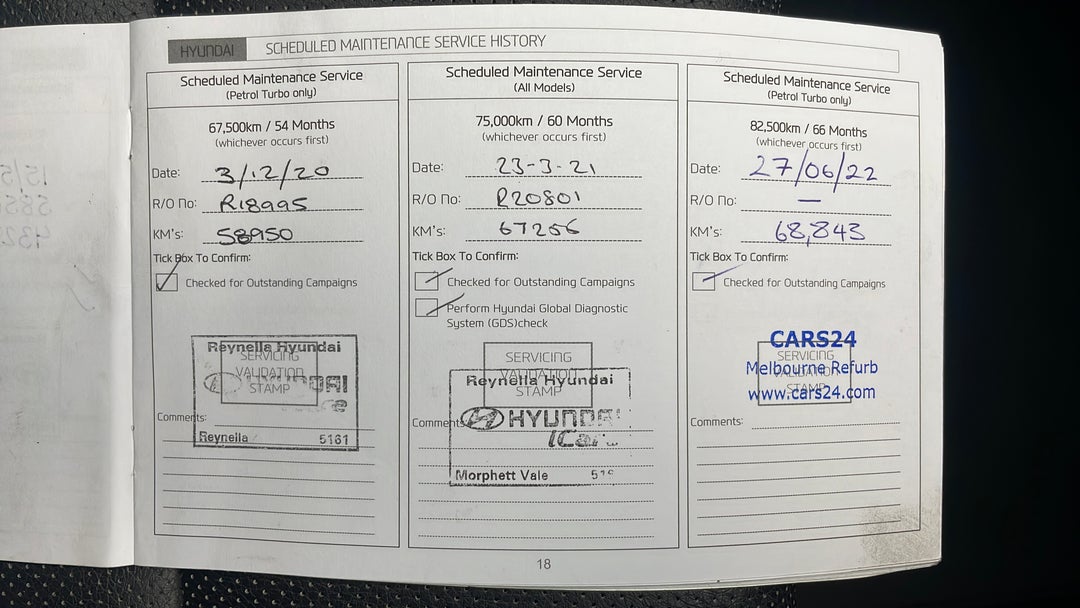 HYUNDAI SCHEDULED MAINTENANCE SERVICE HISTORY
Scheduled Maintenance Service
(Petrol Turbo only)
67,500km / 54 Months
(whichever occurs first)
Date: 3/12/20
R/O No: R18995
KM's: 58950
Tick Box To Confirm:
Checked for Outstanding Campaigns
Reynella Hyundai
SERVICING
VALIDATION
STAMP
HYUNDAI
Comments:
Reynella 5161
Scheduled Maintenance Service
(All Models)
75,000km / 60 Months
(whichever occurs first)
Date: 23-3-21
R/O No: R20801
KM's: 67256
Tick Box To Confirm:
Checked for Outstanding Campaigns
Perform Hyundai Global Diagnostic
System (GDS)check
SERVICING
VALIDATION
STAMP
Reynella Hyundai
Comments:
HYUNDAI
iCare
Morphett Vale
Scheduled Maintenance Service
(Petrol Turbo only)
82,500km / 66 Months
(whichever occurs first)
Date: 27/06/22
R/O No: —
KM's: 68,843
Tick Box To Confirm:
Checked for Outstanding Campaigns
CARS24
SERVICING
Melbourne Refurb
VALIDATION
STAMP
www.cars24.com
Comments:
18